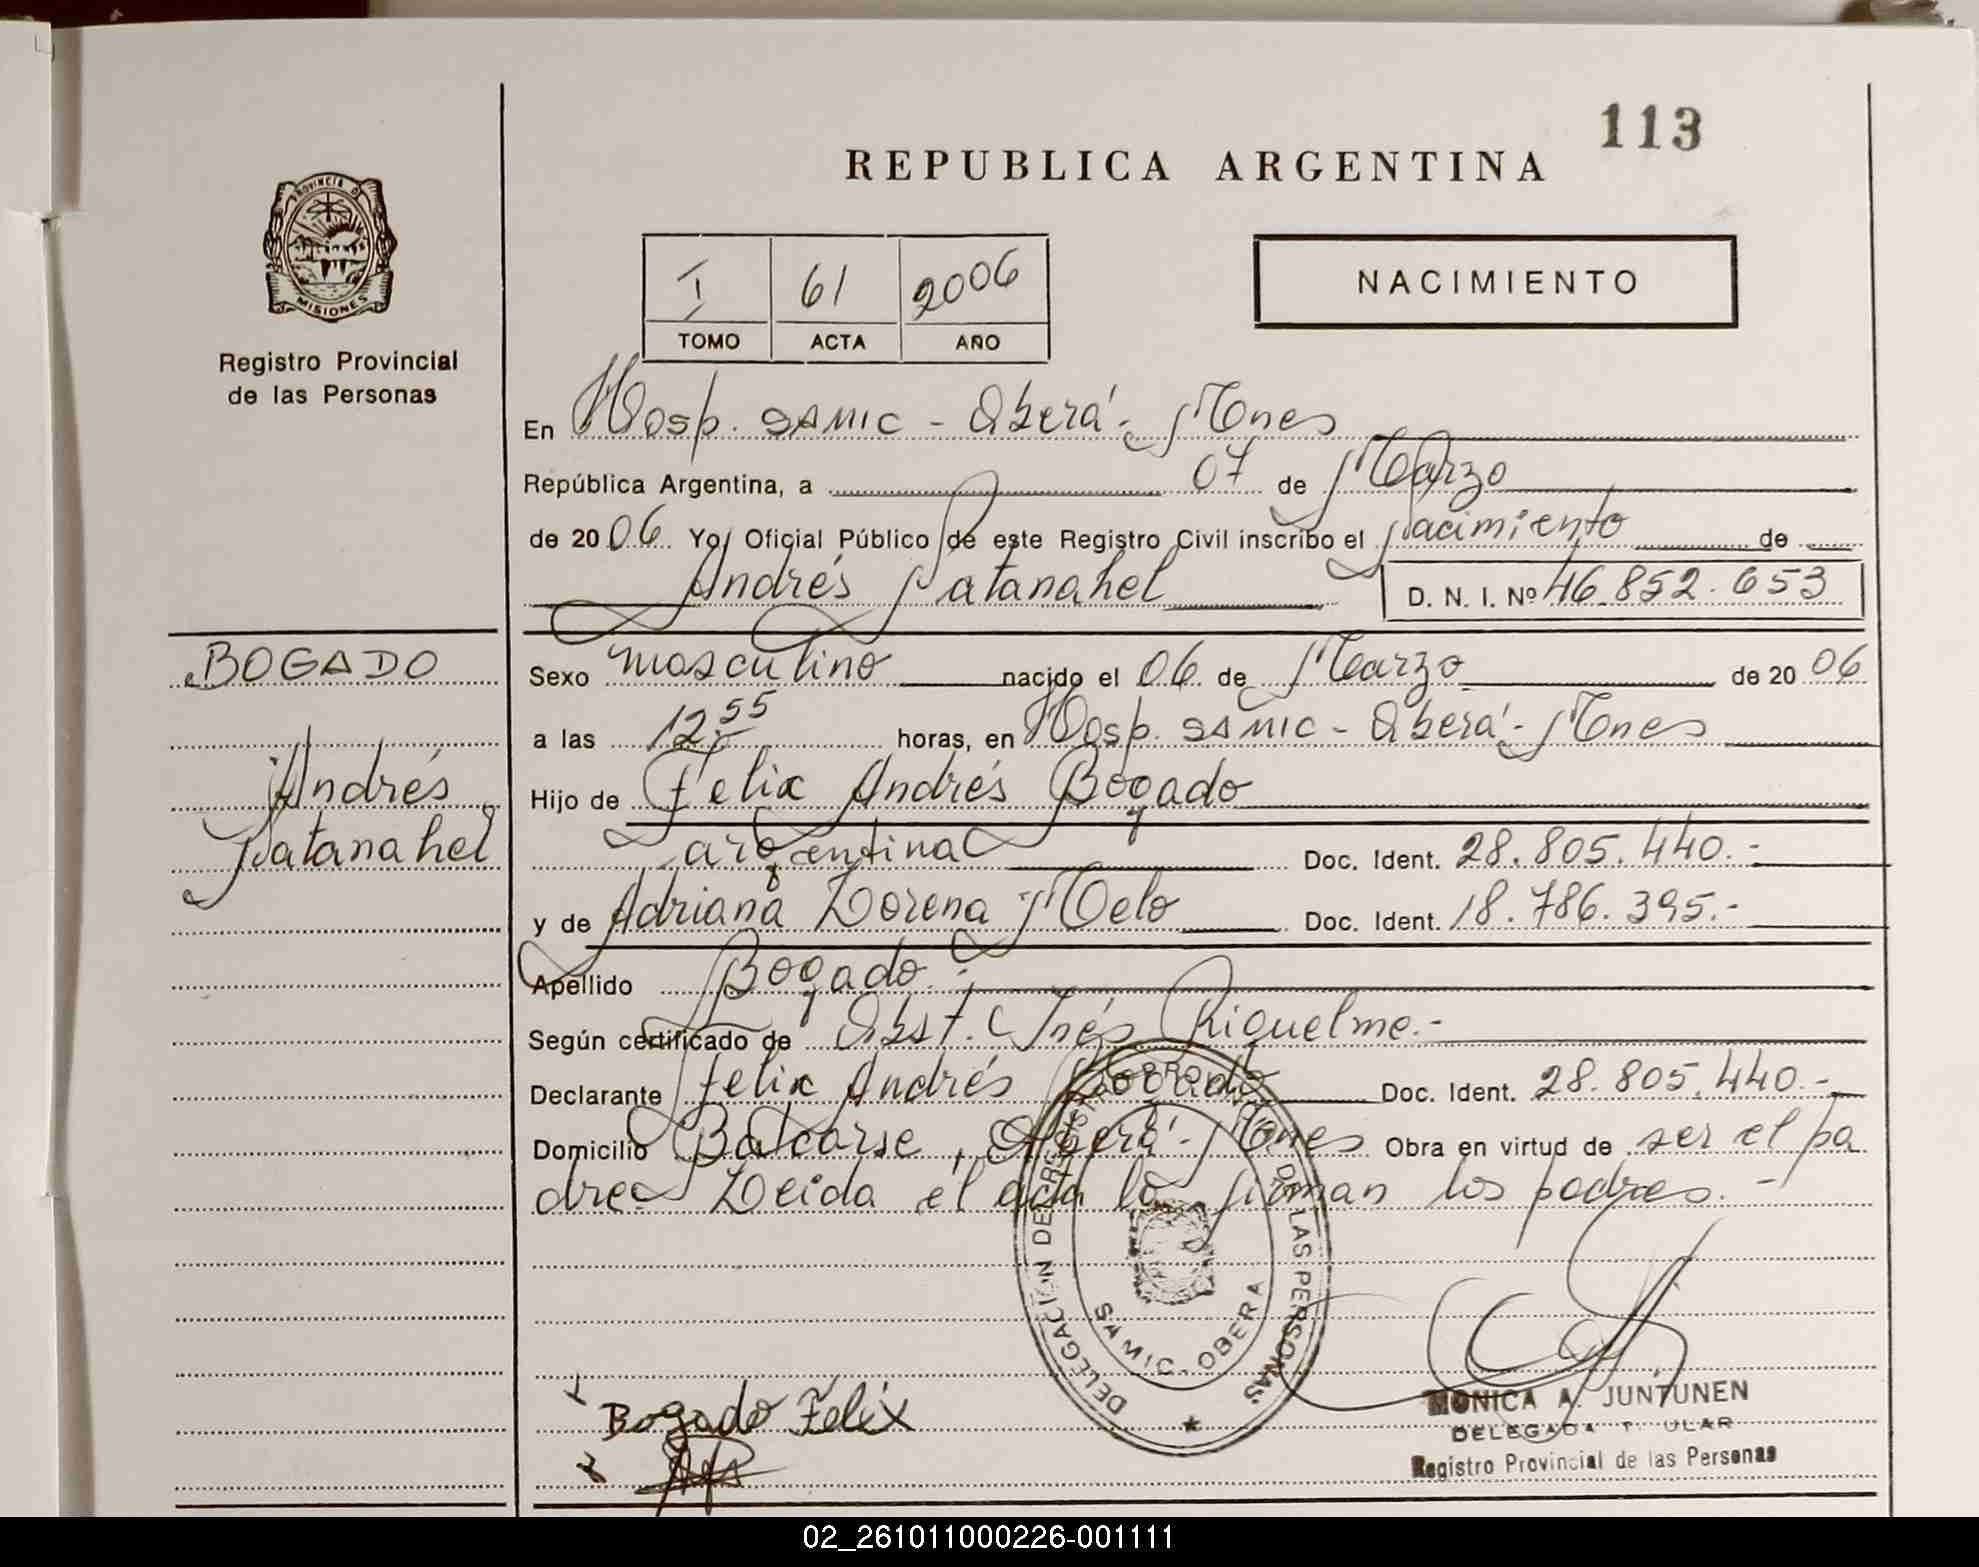 113
REPUBLICA ARGENTINA
PROVINCIA D
MISIONES
Registro Provincial
de las Personas
I 61 2006
TOMO ACTA AÑO
NACIMIENTO
En Hosp. SAMIC - Oberá - Mnes
República Argentina, a 07 de Marzo
de 2006 Yo, Oficial Público de este Registro Civil inscribo el Nacimiento de
Andrés Natanahel D. N. I. Nº 46.852.653
BOGADO
Andrés
Natanahel
Sexo masculino nacido el 06 de Marzo de 2006
a las 12:55 horas, en Hosp. SAMIC - Oberá - Mnes
Hijo de Felix Andrés Bogado
argentina Doc. Ident. 28.805.440.-
y de Adriana Lorena Melo Doc. Ident. 18.786.395.-
Apellido Bogado.-
Según certificado de Obst. Inés Riquelme.-
Declarante Felix Andrés Bogado Doc. Ident. 28.805.440.-
Domicilio Balcarse, Oberá - Mnes Obra en virtud de ser el pa
dre. Leida el acta la firman los padres.-
DELEGACIÓN DEL REGISTRO PROVINCIAL DE LAS PERSONAS
SAMIC - OBERA
Bogado Felix
MONICA A. JUNTUNEN
DELEGADA TITULAR
Registro Provincial de las Personas
02_261011000226-001111